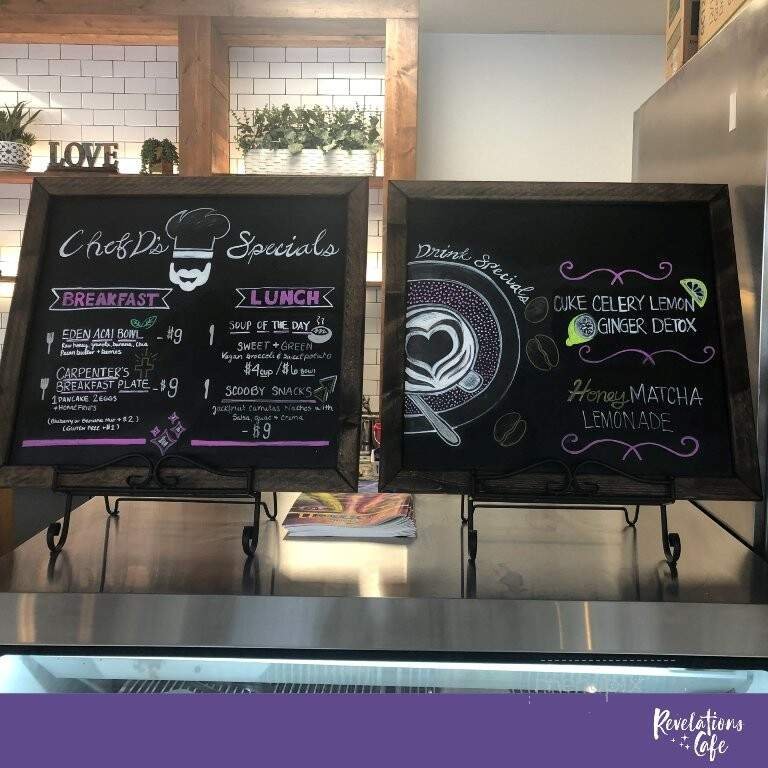 LOVE
Chef D's Specials
BREAKFAST
EDEN ACAI BOWL - $9
Raw honey, granola, banana, chia
Pecan butter + berries
CARPENTER'S
BREAKFAST PLATE - $9
1 PANCAKE 2 EGGS
+ HOMEFRIES
(Blueberry or Banana Nut + $2)
(GLUTEN FREE + $1)
LUNCH
SOUP OF THE DAY
SWEET + GREEN
Vegan broccoli & sweet potato
$4 CUP / $6 BOWL
SCOOBY SNACKS
Jackfruit carnitas Nachos with
Salsa, guac & Crema
- $9
Drink Specials
CUKE CELERY LEMON
GINGER DETOX
Honey MATCHA
LEMONADE
Revelations
Cafe